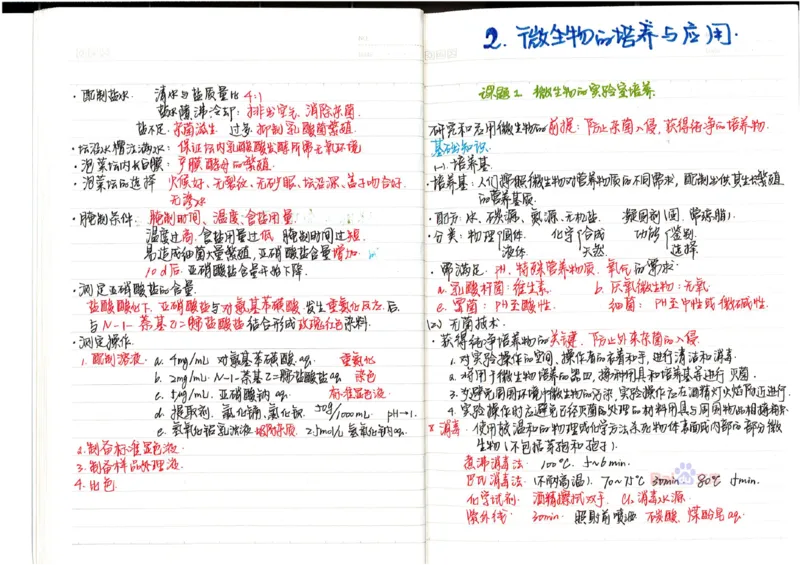 ·配制盐水. 清水与盐质量比 4:1
盐水煮沸冷却: 排出空气, 消除杂菌.
盐不足, 杂菌滋生 过多, 抑制乳酸菌繁殖.
·坛沿水槽注满水: 保证坛内乳酸菌发酵所需无氧环境
·泡菜坛内长白膜: 产膜酵母的繁殖.
·泡菜坛的选择 火候好、无裂纹、无砂眼、坛沿深、盖子吻合好.
无渗水
·腌制条件. 腌制时间、温度、食盐用量.
温度过高, 食盐用量过低 腌制时间过短.
易造成细菌大量繁殖, 亚硝酸盐含量增加.
10d后 亚硝酸盐含量开始下降.
·测定亚硝酸盐的含量.
盐酸酸化下, 亚硝酸盐与对氨基苯磺酸 发生重氮化反应. 后
与N-1-萘基乙二胺盐酸盐 结合形成玫瑰红色染料.
·测定操作.
1. 配制溶液. a. 4mg/mL 对氨基苯磺酸 aq. 重氮化
b. 2mg/mL N-1-萘基乙二胺盐酸盐 aq. 染色
c. 5μg/mL 亚硝酸钠 aq. 标准显色液
d. 提取剂. 氯化镉, 氯化钡 50g/1000mL pH→1.
e. 氢氧化铝乳浊液 2.5mol/L 氢氧化钠 aq.
2. 制备标准显色液.
3. 制备样品处理液.
4. 比色.
2. 微生物的培养与应用.
课题1 微生物的实验室培养.
研究和应用微生物的前提: 防止杂菌入侵, 获得纯净的培养物.
基础知识.
(一) 培养基.
·培养基: 人们按照微生物对营养物质的不同需求, 配制出供其生长繁殖
的营养基质.
·配方: 水、碳源、氮源、无机盐. 凝固剂(固, 常琼脂).
·分类: 物理{固体 化学{合成 功能{鉴别
液体. 天然 选择.
·需满足. pH、特殊营养物质、氧气的需求:
a. 乳酸杆菌: 维生素. b. 厌氧微生物: 无氧.
c. 霉菌: pH至酸性. 细菌: pH至中性或微碱性.
(二) 无菌技术.
·获得纯净培养物的关键, 防止外来杂菌的入侵.
1. 对实验操作的空间, 操作者的衣着和手, 进行清洁和消毒.
2. 将用于微生物培养的器皿、接种用具和培养基等进行灭菌.
3. 为避免周围环境中微生物的污染, 实验操作应在酒精灯火焰附近进行.
4. 实验操作时应避免已经灭菌处理的材料用具与周围物品相接触.
消毒: 使用较温和的物理或化学方法杀死物体表面或内部的部分微
生物(不包括芽孢和孢子).
煮沸消毒法. 100℃. 5~6min.
巴氏消毒法. (不耐高温). 70~75℃ 30min. 80℃ 15min.
化学试剂. 酒精擦拭双手. Cl₂消毒水源.
紫外线. 30min. 照射前喷洒 石碳酸、煤酚皂 aq.